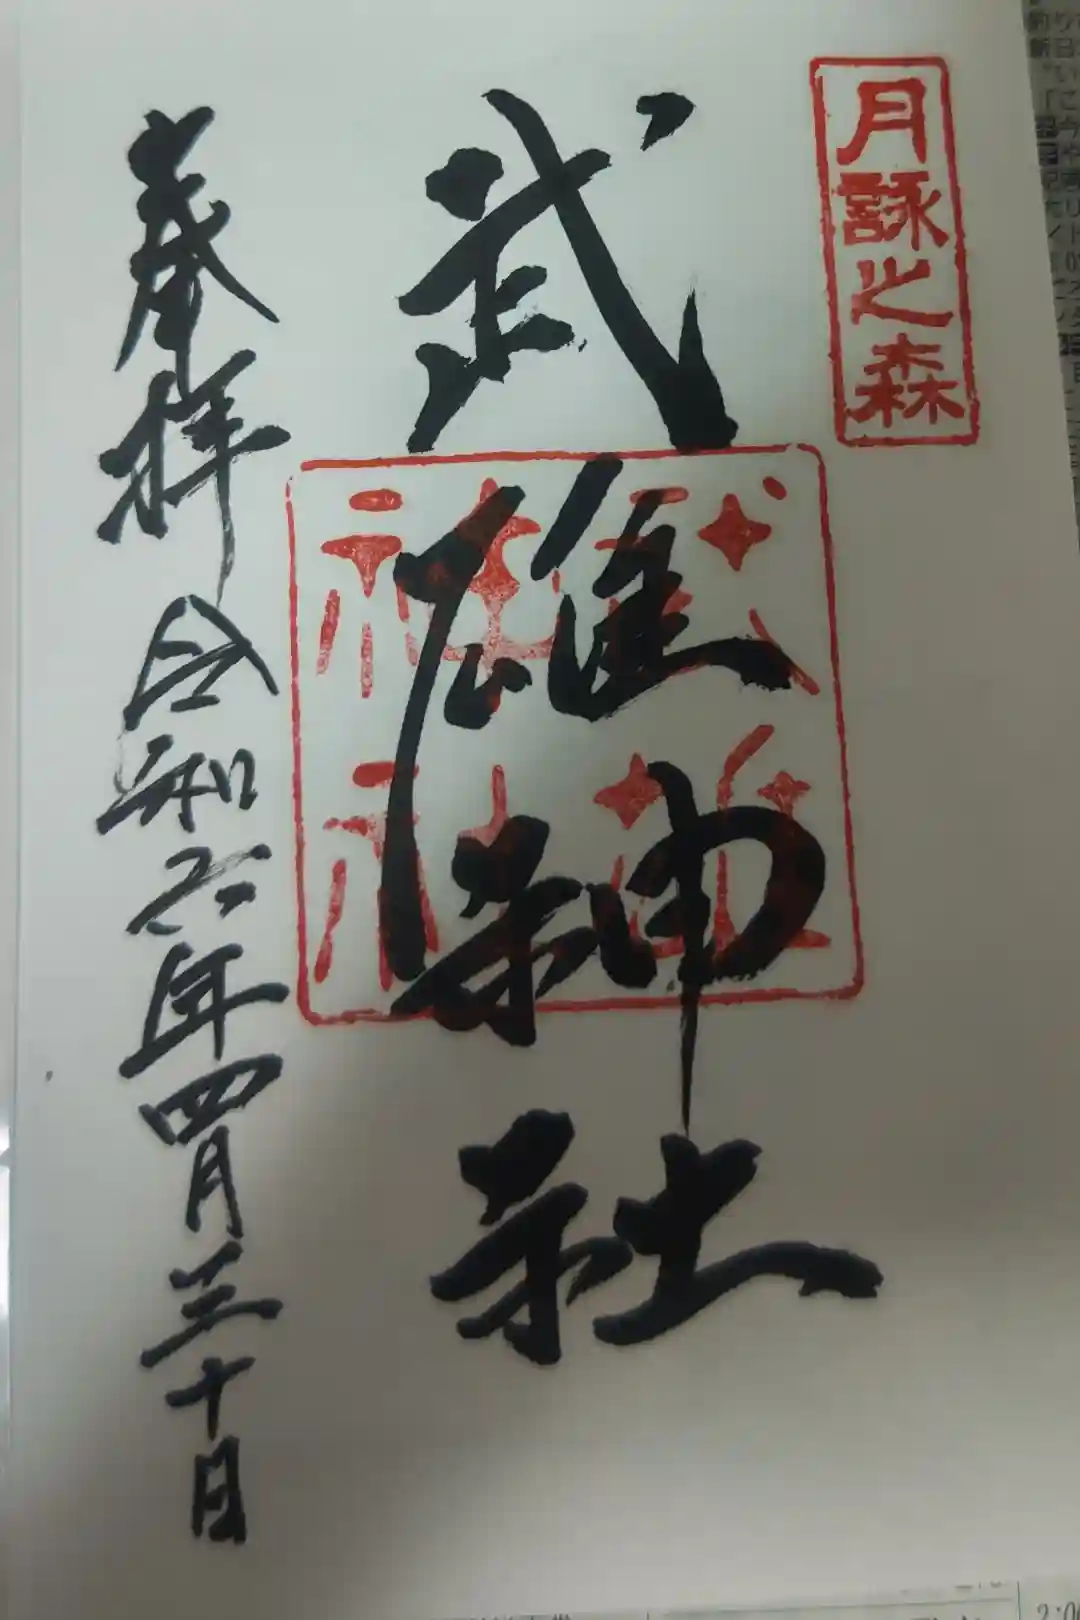 月詠之森
武雄神社
武雄神社
奉拝 令和六年四月三十日